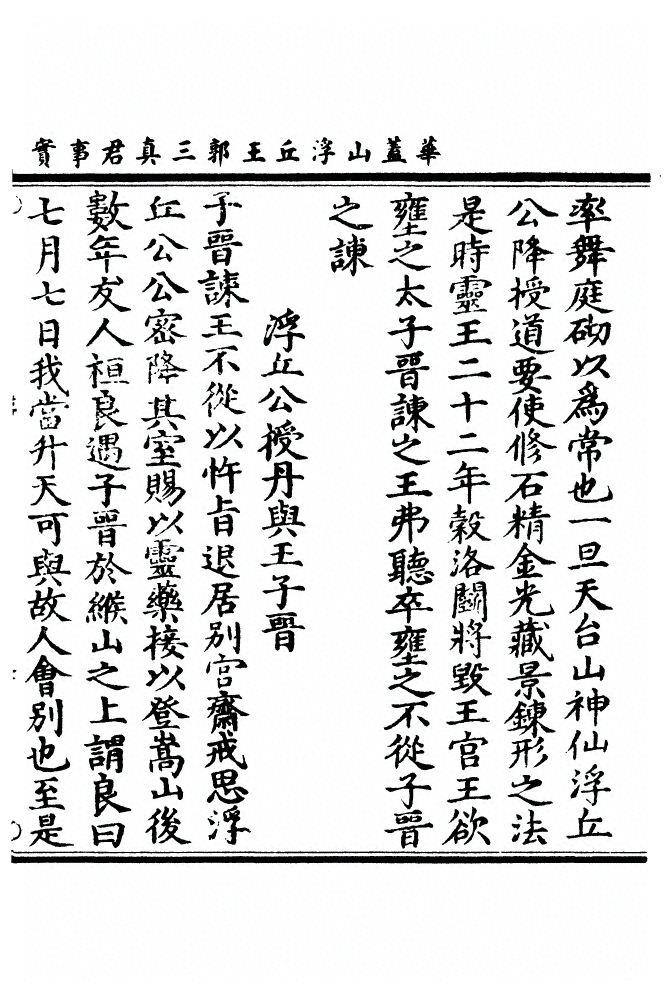 華蓋山浮丘王郭三真君事實
率舞庭砌以為常也一旦天台山神仙浮丘
公降授道要使修石精金光藏景鍊形之法
是時靈王二十二年穀洛鬭將毀王宮王欲
壅之太子晉諫之王弗聽卒壅之不從子晉
之諫
浮丘公授丹與王子晉
子晉諫王不從以忤旨退居別宮齋戒思浮
丘公公密降其室賜以靈藥接以登嵩山後
數年友人桓良遇子晉於緱山之上謂良曰
七月七日我當升天可與故人會別也至是